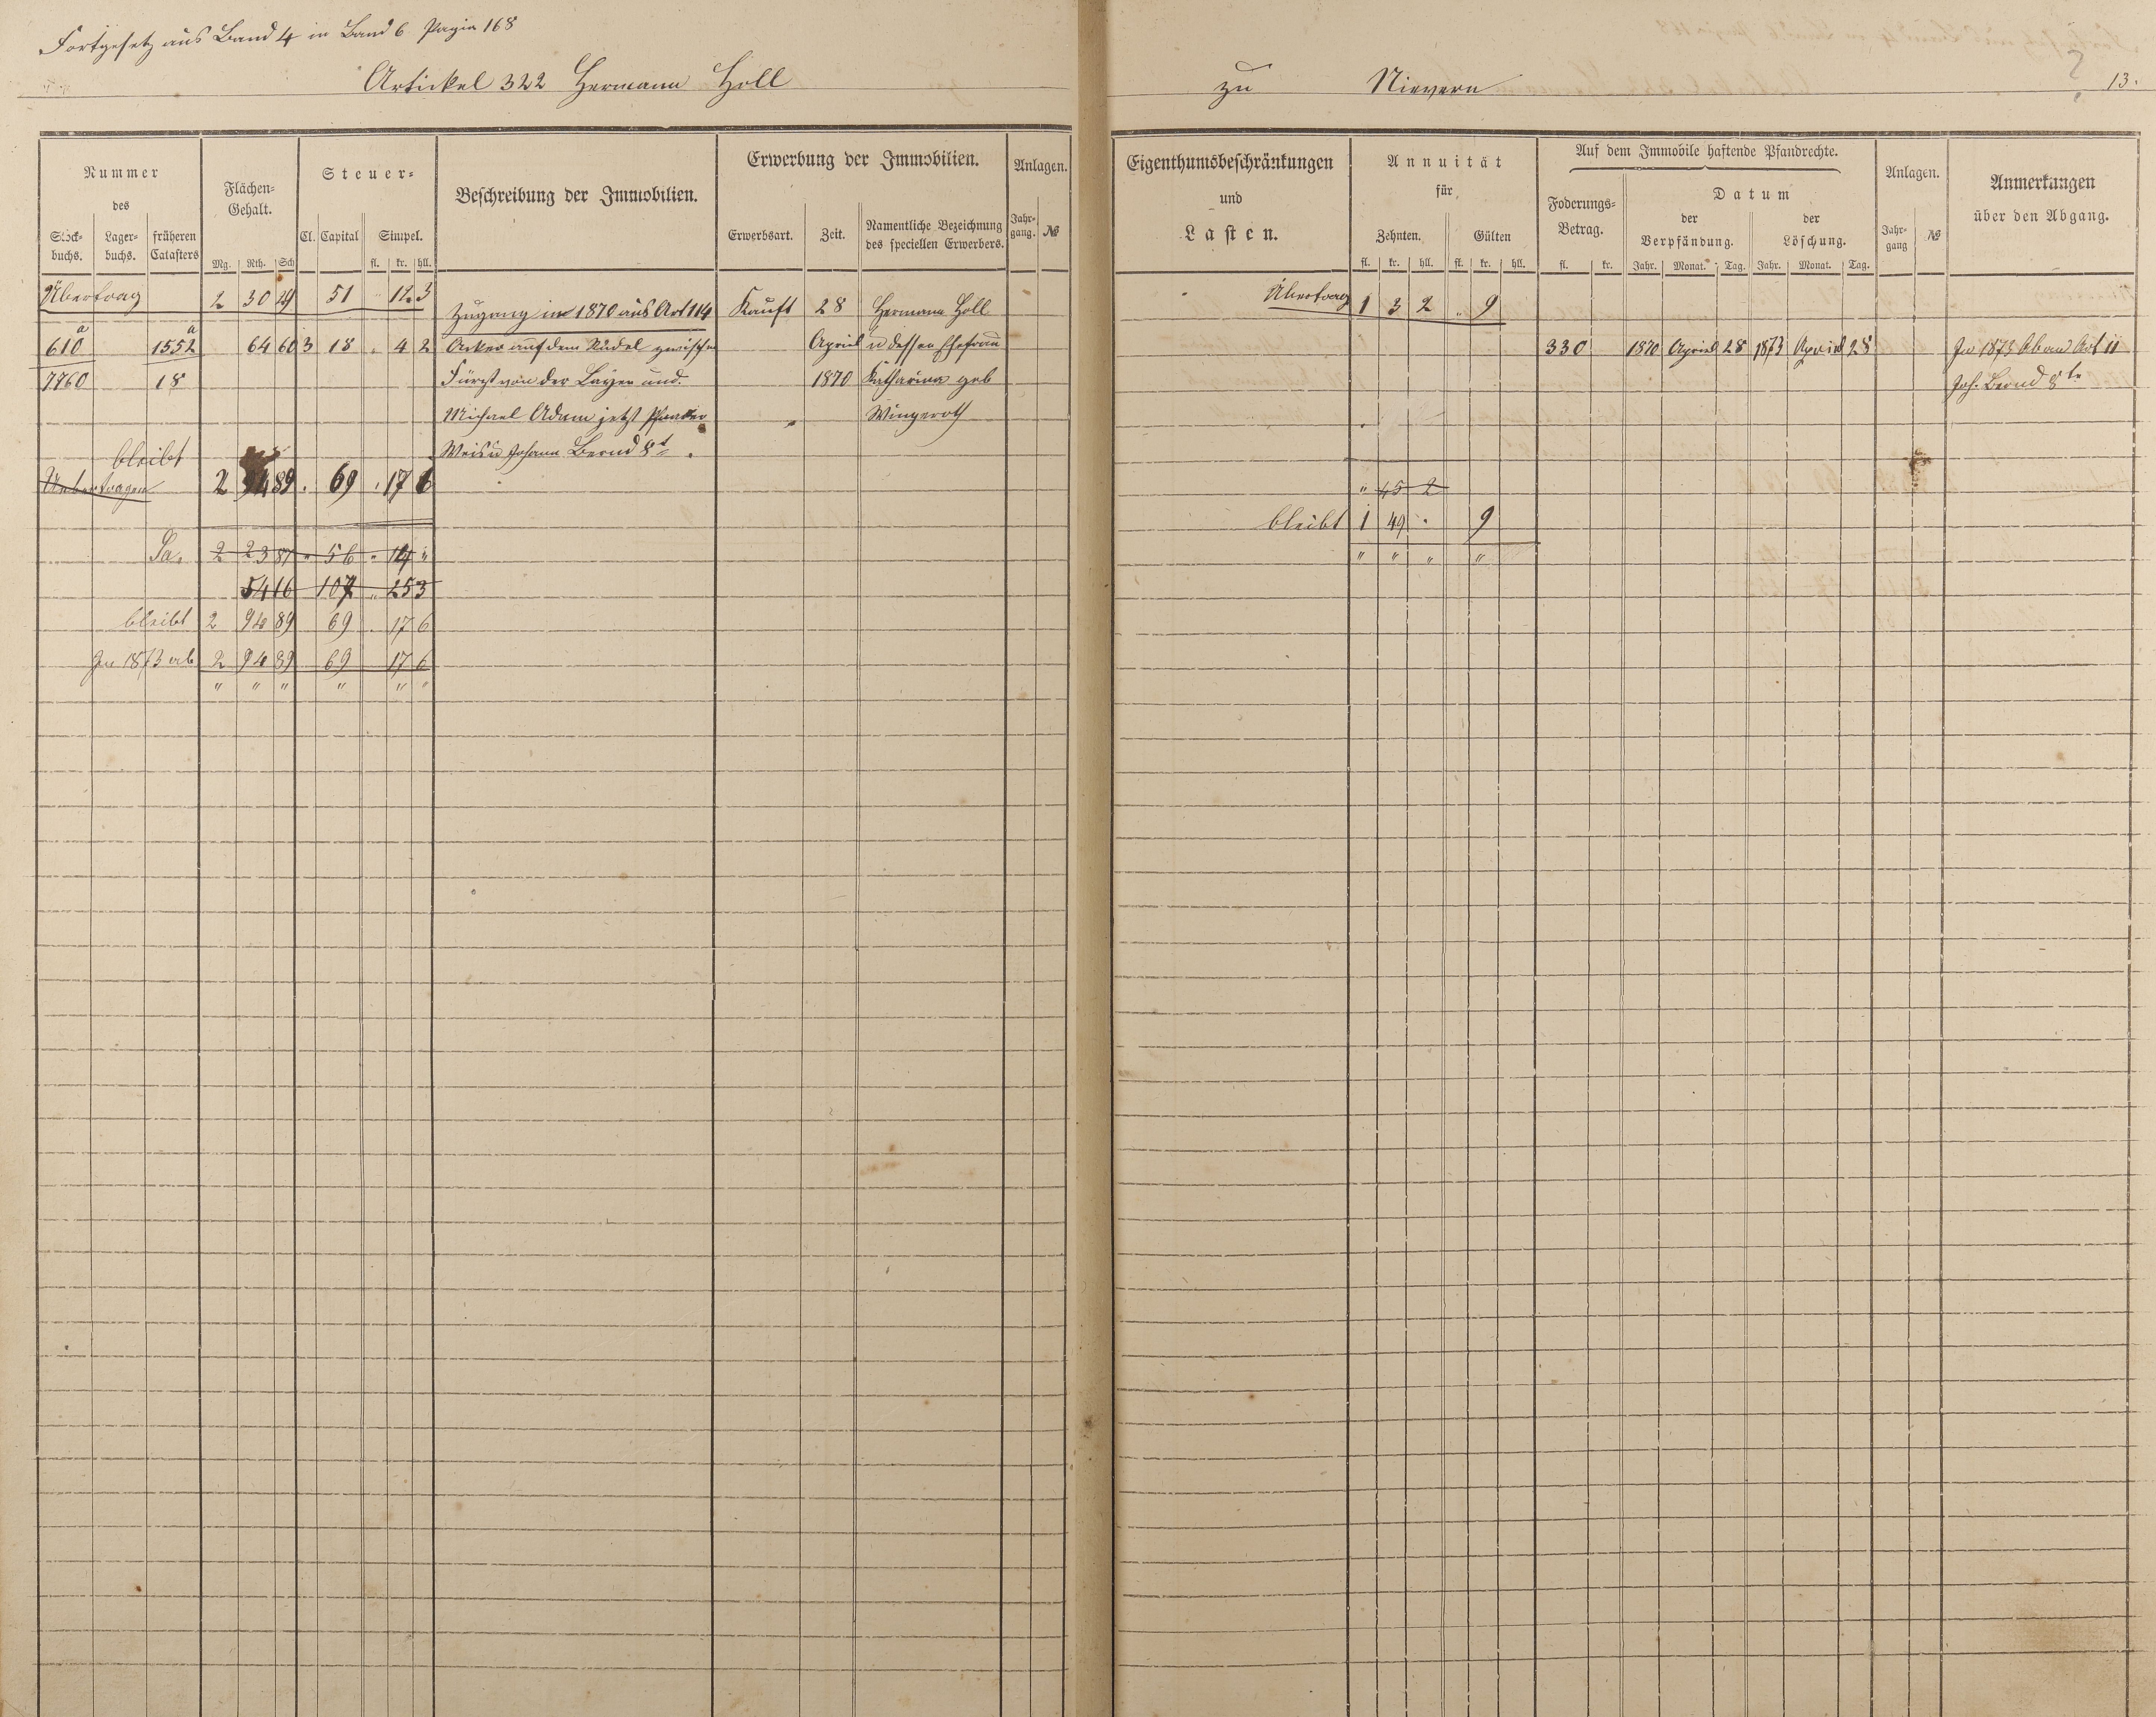 Fortgesetz aus Band 4 in Band 6 Pagin 168
Artickel 322 Hermann Holl zu Nievern 13.
Nummer des
Stock-buchs. Lager-buchs. früheren Catasters
Flächen-Gehalt.
Mg. Rth. Sch
Steuer-
Cl. Capital Simpel.
fl. kr. hll.
Beschreibung der Immobilien.
Erwerbung der Immobilien.
Erwerbsart. Zeit. Namentliche Bezeichnung des speciellen Erwerbers.
Anlagen.
Jahr-gang. №
Eigenthumsbeschränkungen
und
Lasten.
Annuität
für
Zehnten. Gülten
fl. kr. hll. fl. kr. hll.
Auf dem Immobile haftende Pfandrechte.
Foderungs-Betrag.
fl. kr.
Datum
der Verpfändung. der Löschung.
Jahr. Monat. Tag. Jahr. Monat. Tag.
Anlagen.
Jahr-gang №
Anmerkungen
über den Abgang.
Übertrag 2 30 29 51 12 3
Zugang in 1870 aus Art 114 Kauft 28 Hermann Holl
Übertrag 1 3 2 " 9
610 a 1552 a 64 60 3 18 " 4 2 Acker auf dem Rüdel zwischen April u dessen Ehefrau
330 1870 April 28 1873 April 28 In 1873 Ab an Art 11
7760 18 Fürst von der Layen und 1870 Katharina geb
Joh. Bernd 8te
Michael Adam jetzt Pfarrer " Wingeroth
Weis u Johann Bernd 8t.
bleibt
Uebertragen 2 94 89 69 17 6
" 45 2
bleibt 1 49 " 9
Sa. 2 23 87 " 56 " 14 "
" " " "
54 16 107 " 25 3
bleibt 2 94 89 69 " 17 6
In 1873 ab 2 94 89 69 17 6
" " " " " "